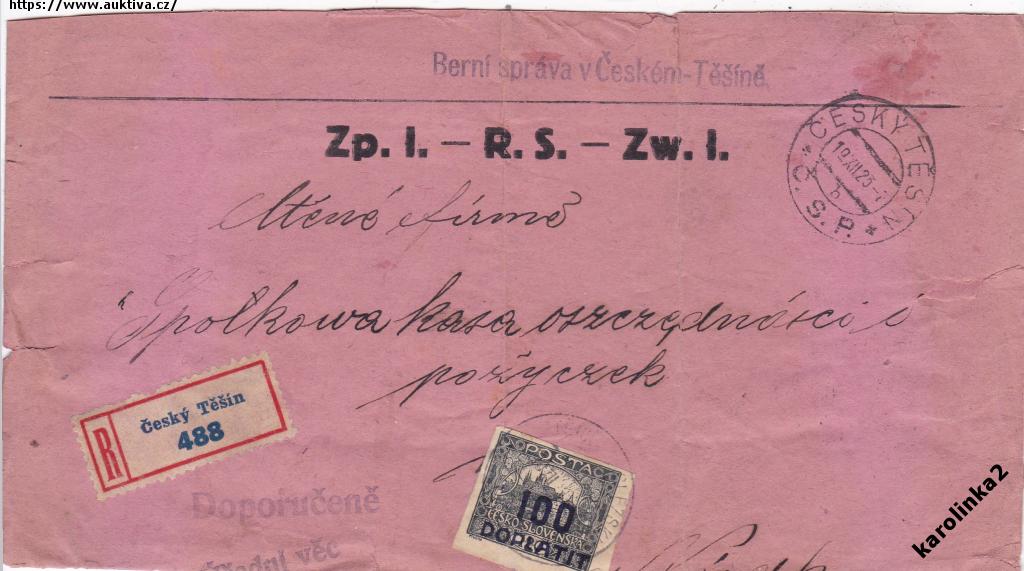 https://www.auktiva.cz/
Berní správa v Českém-Těšíně
Zp. I. — R. S. — Zw. I.
ČESKÝ TĚŠÍN
19.XII.23
b
Č. S. P.
Ctěné firmě
Spolkowa kasa oszczędności i
pożyczek
R
Český Těšín
488
Doporučeně
POSTA
100
ČESKO-SLOVENSKÁ
DOPLATIT
věc
karolinka2